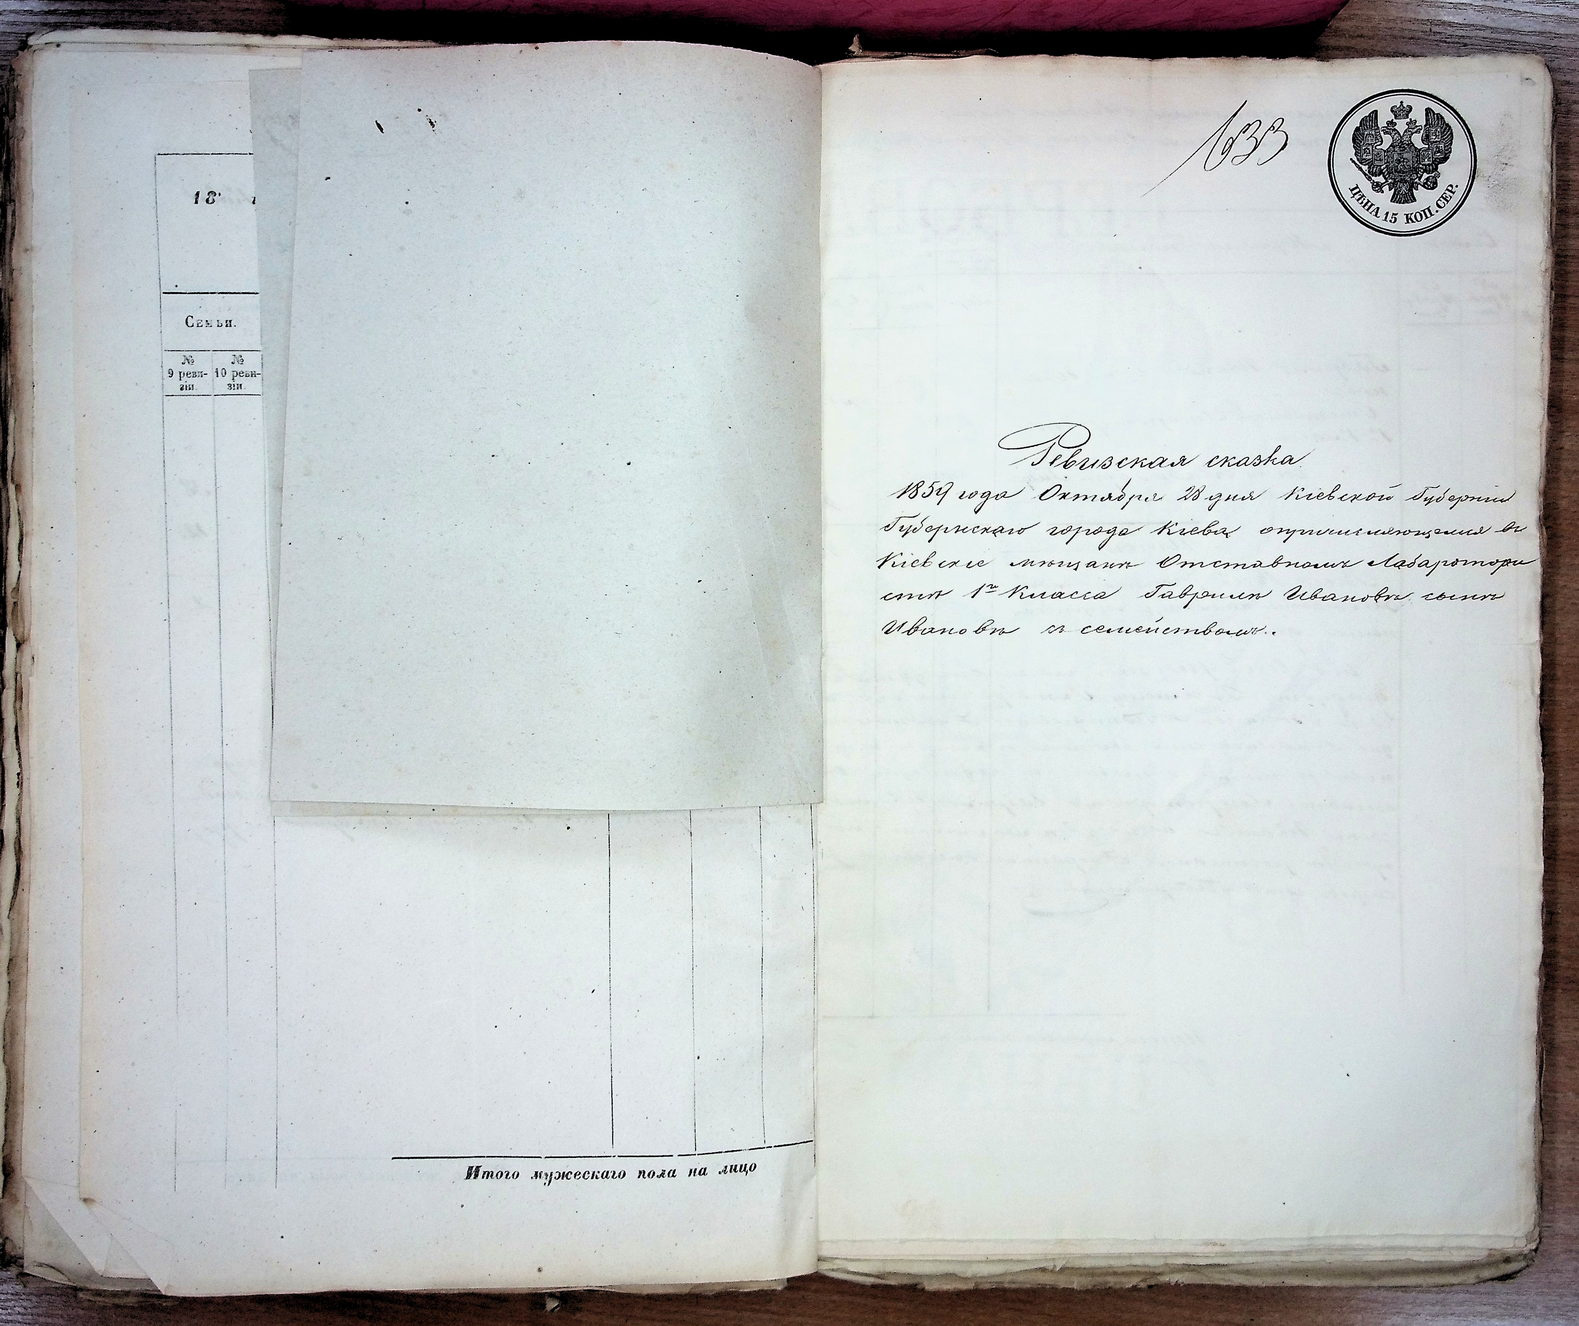 18
Семьи.
№ № 
9 реви- 10 реви-
зіи. зіи.
Итого мужескаго пола на лицо
633
ЦѢНА 15 КОП. СЕР.
Ревизская сказка
1859 года Октября 28 дня Кіевской Губерніи
Губернскаго города Кіева о причисляющемся въ
Кіевскіе мѣщане Отставномъ Лабаротори
стѣ 1го Класса Гаврилѣ Ивановѣ сынѣ
Ивановѣ съ семействомъ.